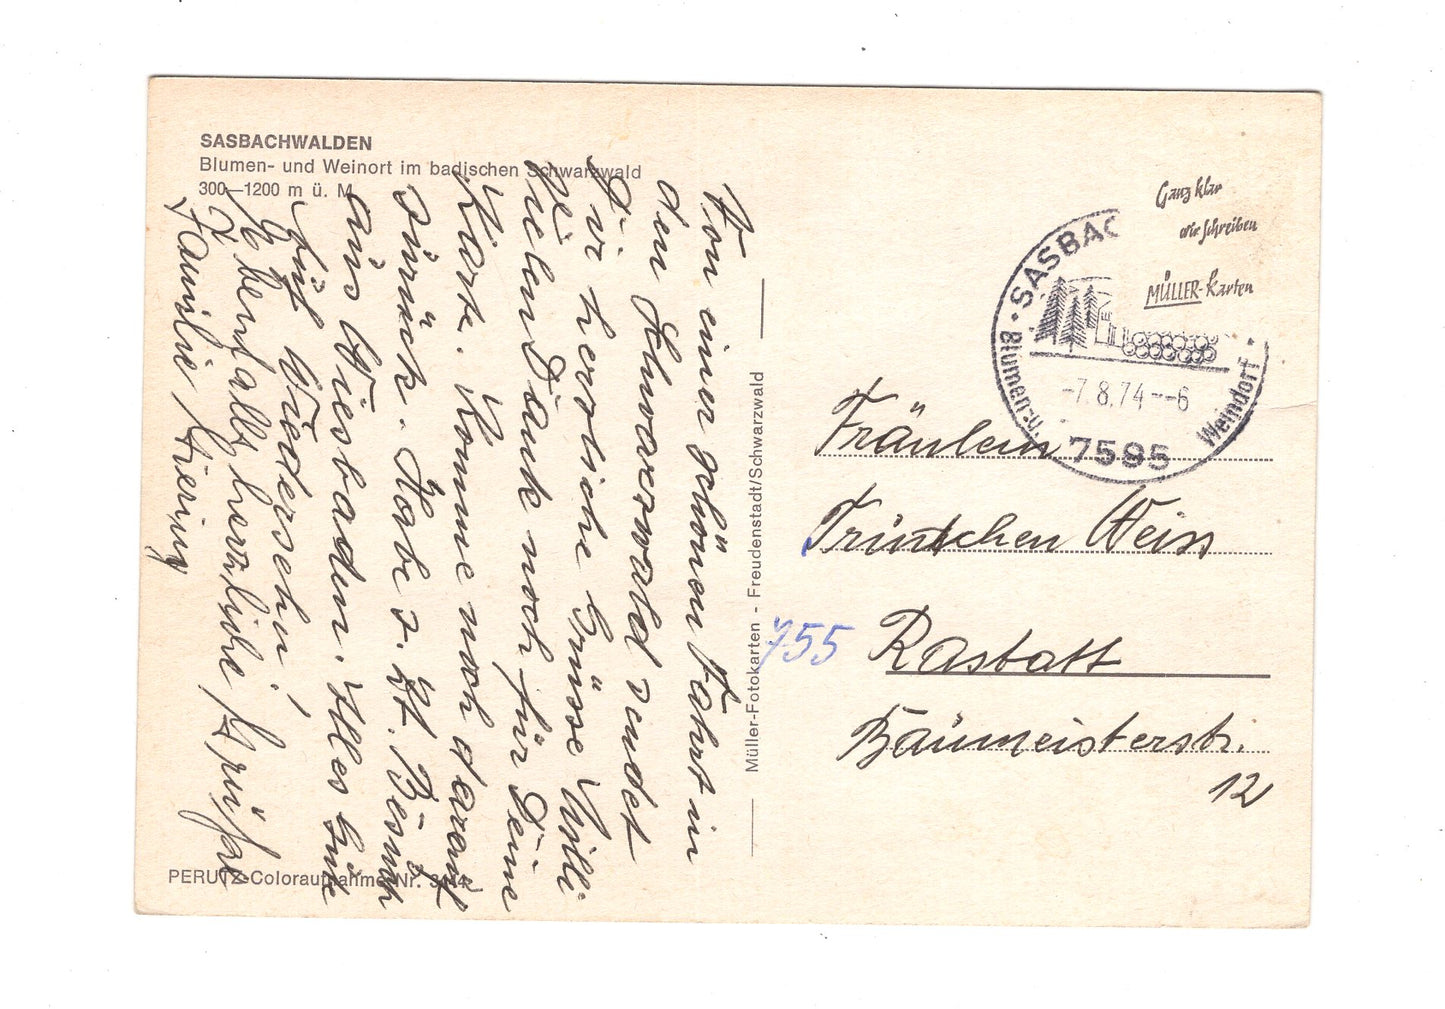 SASBACHWALDEN
Blumen- und Weinort im badischen Schwarzwald
300—1200 m ü. M.
Von einer schönen Fahrt in
den Schwarzwald sendet
Dir herzliche Grüsse Willi
Vielen Dank noch für Deine
Karte. Komme noch darauf
zurück. Habe z. Zt. Besuch
aus Wiesbaden. Alles Gute
Auf Wiedersehn!
Ebenfalls herzliche Grüße
Familie
PERUTZ-Coloraufnahme Nr.
Müller-Fotokarten - Freudenstadt/Schwarzwald
Ganz klar
wir schreiben
MÜLLER-Karten
SASBAC
Blumen-u. Weindorf
-7.8.74--6
7595
Fräulein
Trindchen Weiss
755 Rastatt
Baumeisterstr.
12